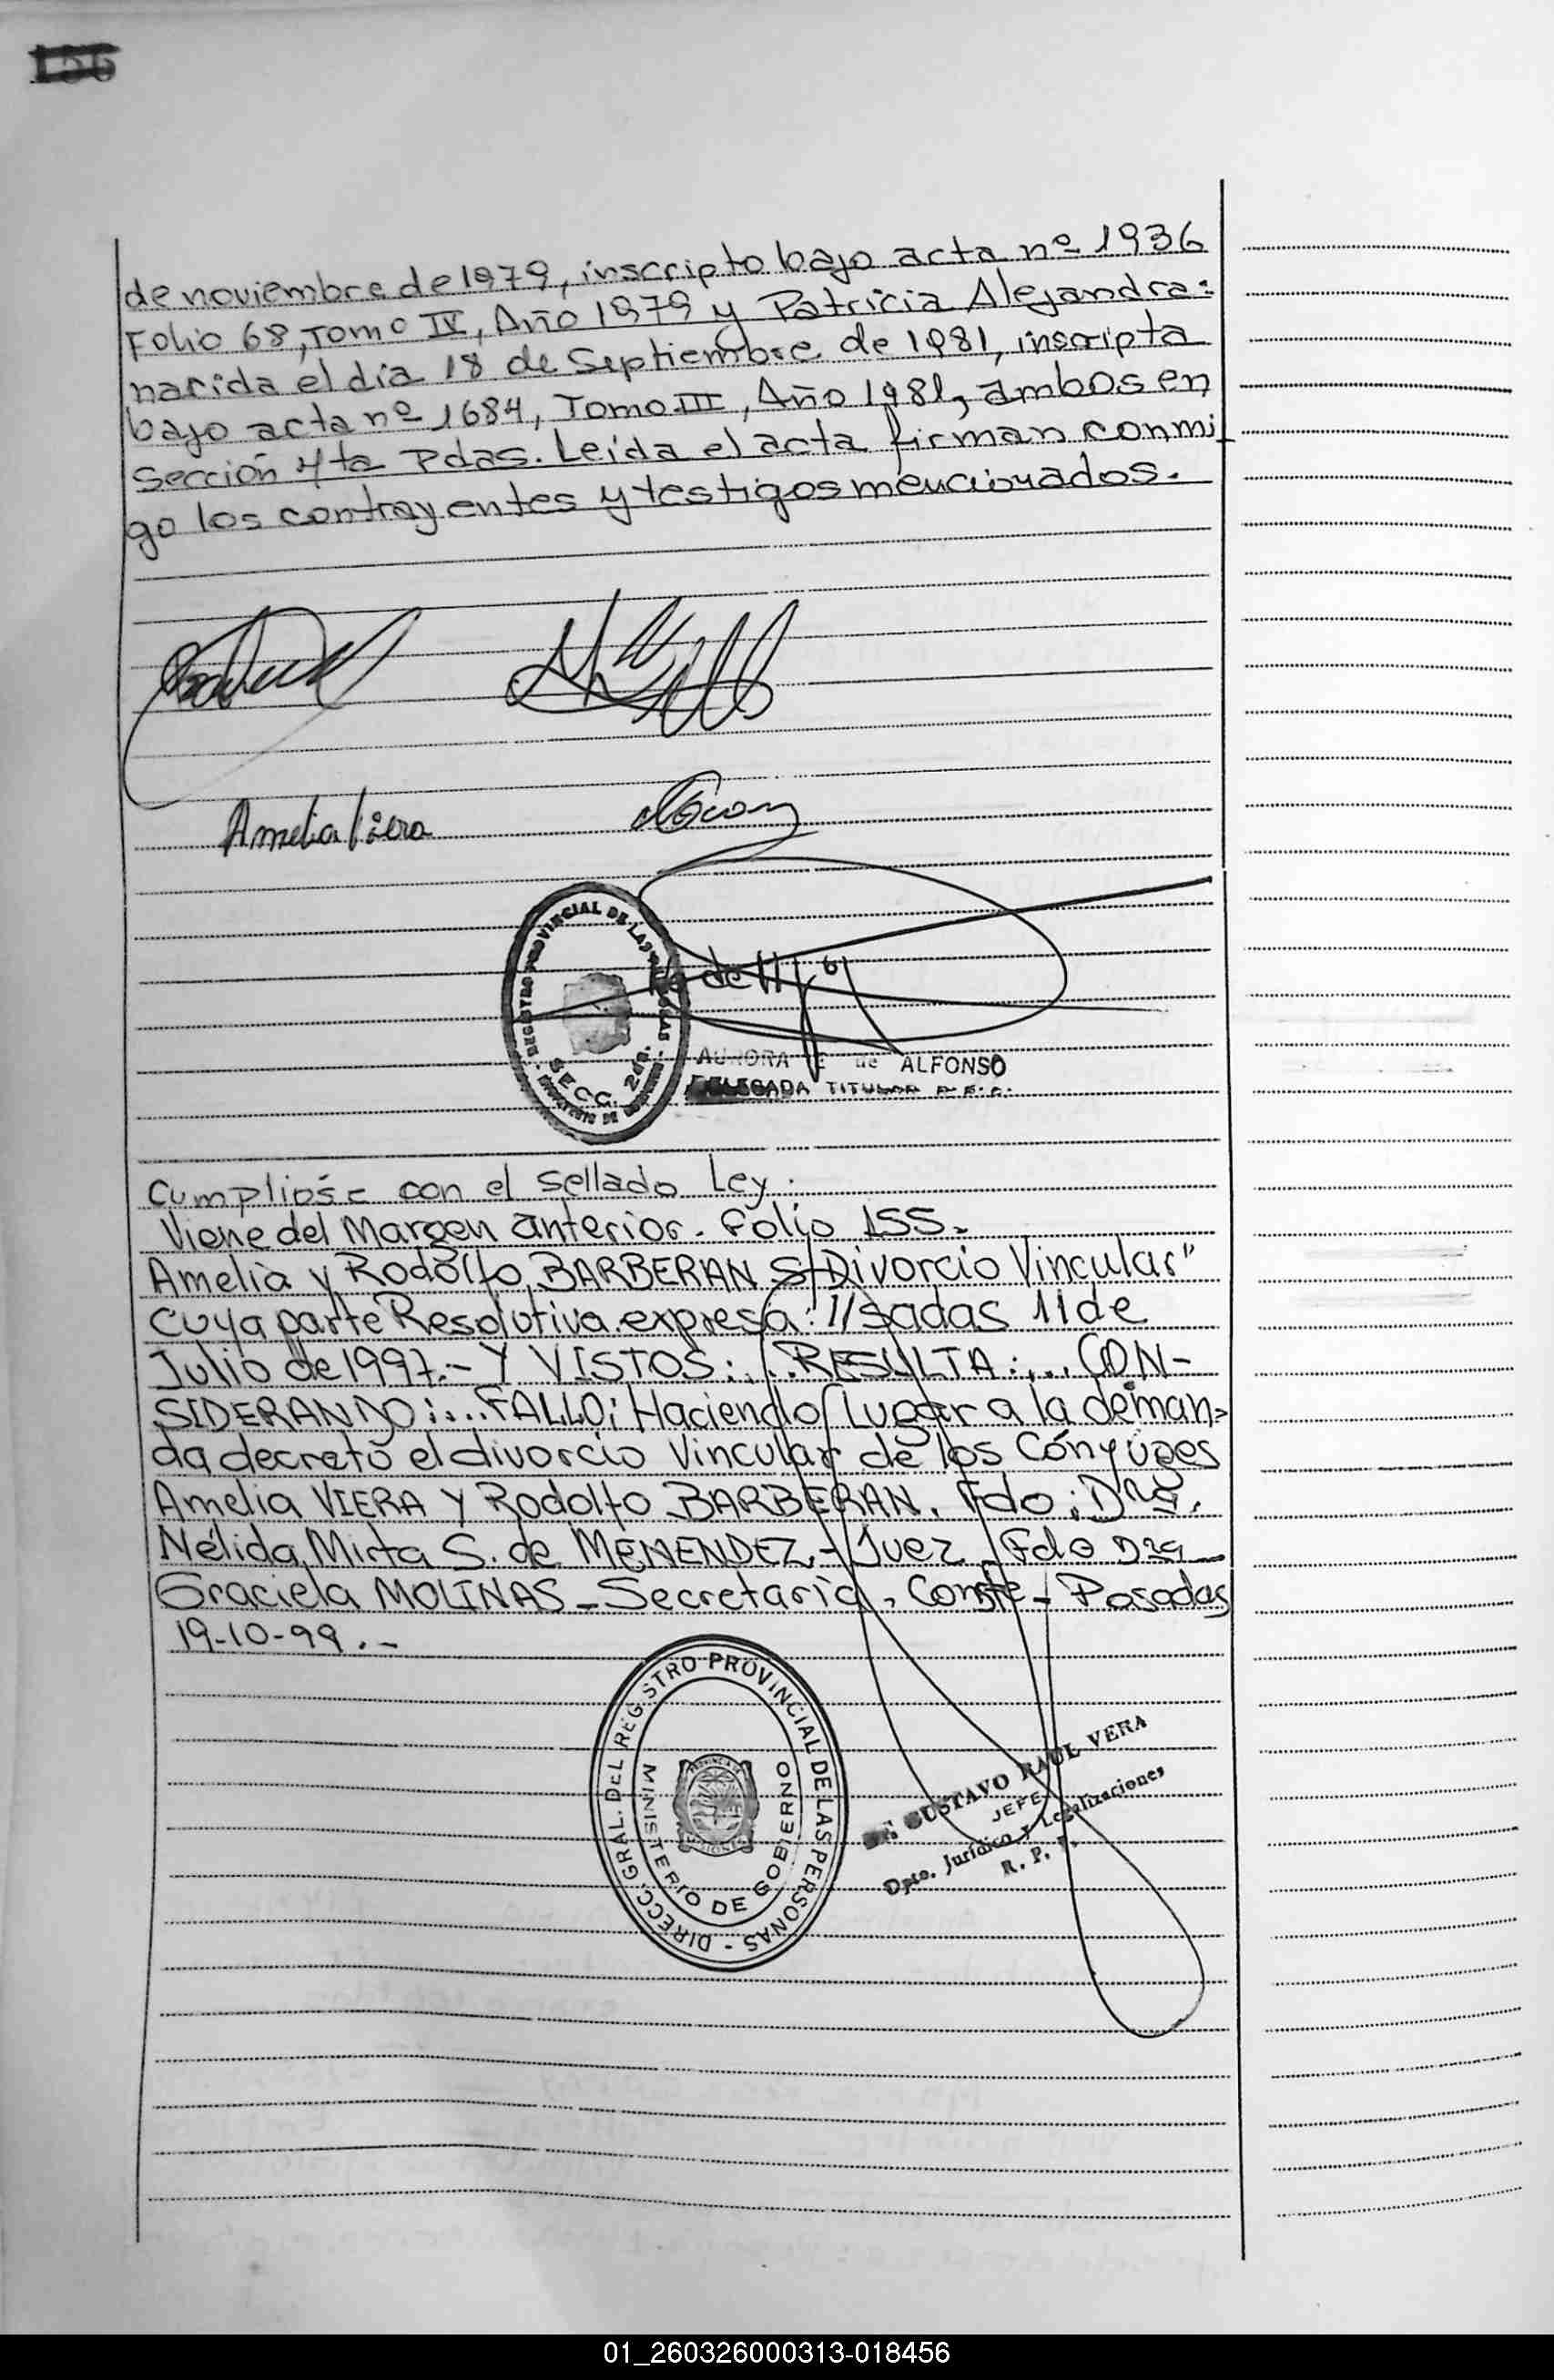 156
de noviembre de 1979, inscripto bajo acta nº 1936
Folio 68, Tomo IV, Año 1979 y Patricia Alejandra:
nacida el dia 18 de Septiembre de 1981, inscripta
bajo acta nº 1684, Tomo III, Año 1981, ambos en
Sección 4ta Pdas. Leida el acta firman conmi
go los contrayentes y testigos mencionados.
Amelia Viera
REGISTRO PROVINCIAL DE LAS PERSONAS
SECC. 2da.
AURORA E de ALFONSO
DELEGADA TITULAR
Cumpliose con el sellado Ley.
Viene del Margen anterior. Folio 155.
Amelia y Rodolfo BARBERAN S/Divorcio Vincular"
cuya parte Resolutiva expresa: //sadas 11 de
Julio de 1997.- Y VISTOS:...RESULTA:... CON-
SIDERANDO:...FALLO: Haciendo Lugar a la deman-
da decreto el divorcio Vincular de los Cónyuges
Amelia VIERA y Rodolfo BARBERAN. Fdo: Dra.
Nélida Mirta S. de MENENDEZ.- Juez Fdo Dra
Graciela MOLINAS - Secretaria. Conste - Posadas
19-10-99.-
DIRECC. GRAL. DEL REGISTRO PROVINCIAL DE LAS PERSONAS -
MINISTERIO DE GOBIERNO
GUSTAVO RAUL VERA
JEFE
Dpto. Jurídico y Legalizaciones
R. P. P.
01_260326000313-018456